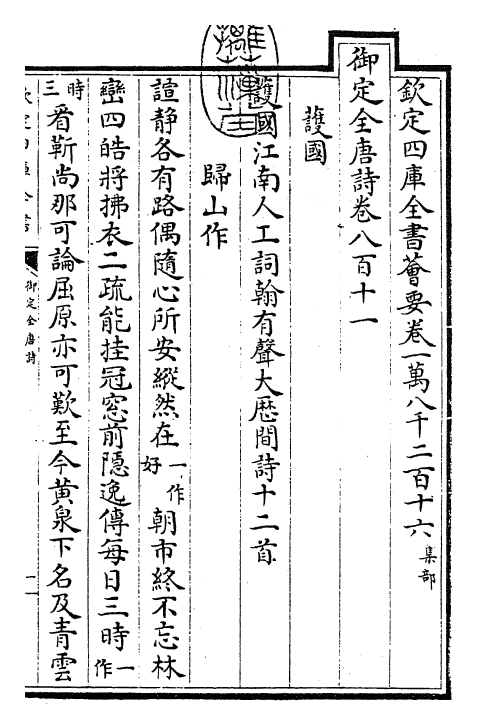 欽定四庫全書薈要卷一萬八千二百十六 集部
御定全唐詩卷八百十一
護國
護國江南人工詞翰有聲大厯間詩十二首
歸山作
諠静各有路偶隨心所安縱然在一作好朝市終不忘林
巒四皓將拂衣二疏能挂冠窓前隠逸傳每日三時一作
時三㸔靳尚那可論屈原亦可歎至今黄泉下名及青雲
御定全唐詩